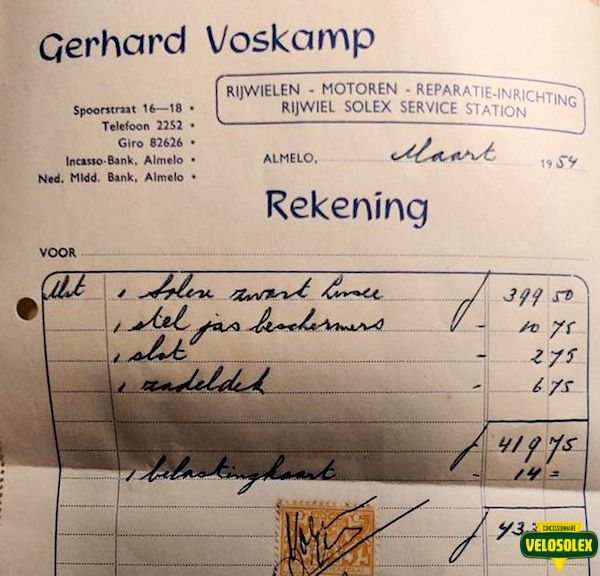 Gerhard Voskamp
RIJWIELEN - MOTOREN - REPARATIE-INRICHTING
RIJWIEL SOLEX SERVICE STATION
Spoorstraat 16—18 •
Telefoon 2252 •
Giro 82626 •
Incasso-Bank, Almelo •
Ned. Midd. Bank, Almelo •
ALMELO, Maart 1954
Rekening
VOOR
1 Solex zwart f 399 50
1 stel jas beschermers - 10 75
1 slot - 2 75
1 zadeldek - 6 75
f 419 75
1 belastingkaart - 14 =
f 433
CONCESSIONNAIRE
VELOSOLEX